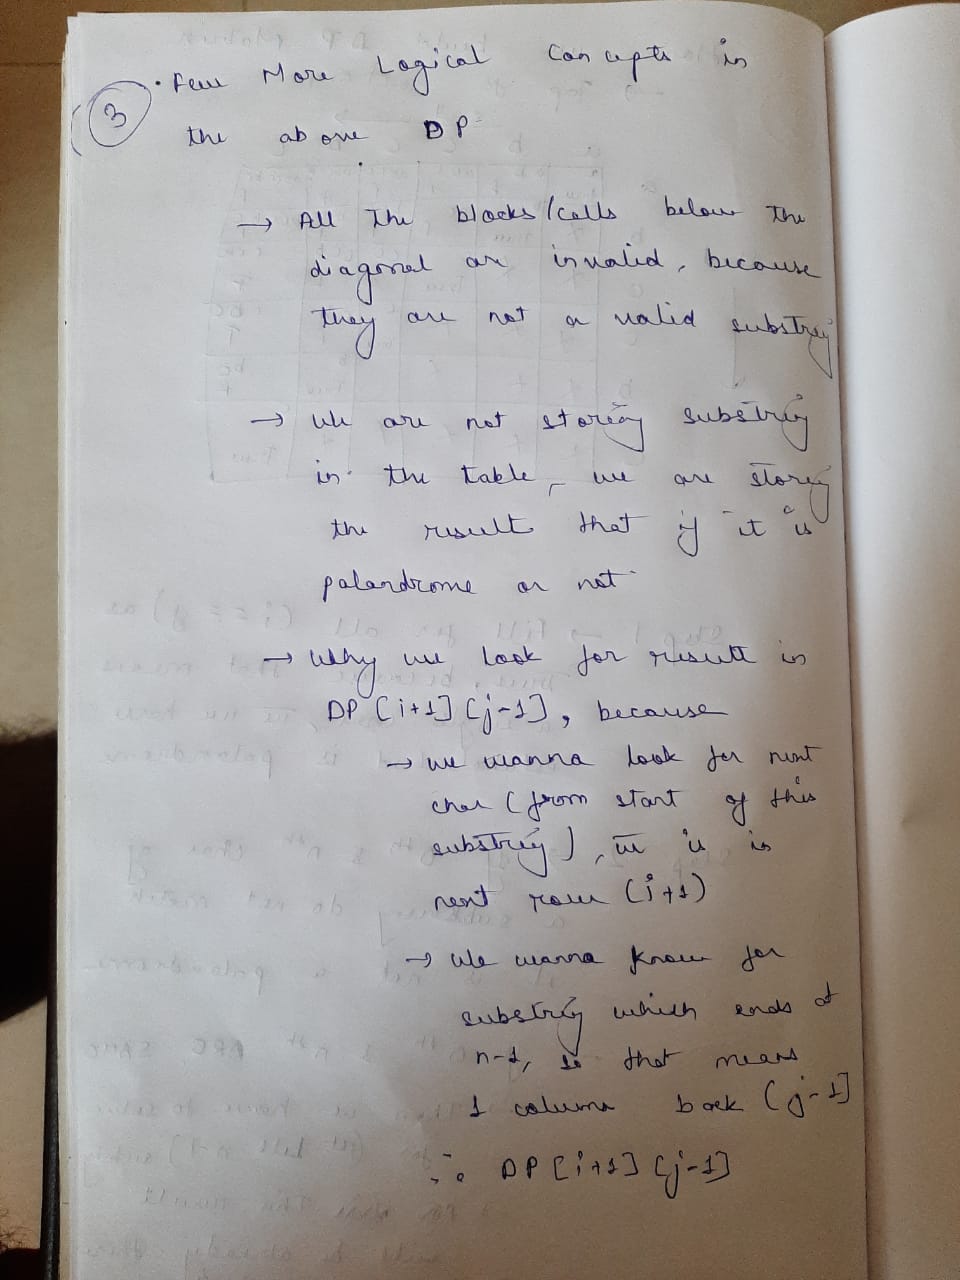 3
· Few More Logical Concepts in
the above DP
→ All The blocks/cells below the
diagonal are invalid, because
they are not a valid substring
→ We are not storing substring
in the table, we are storing
the result that if it is
palandrome or not
→ Why we look for result in
DP [i+1] [j-1], because
→ we wanna look for next
char (from start of this
substring), is in
next row (i+1)
→ We wanna know for
substring which ends at
n-1, so that means
1 column back (j-1]
∴ DP [i+1] [j-1]